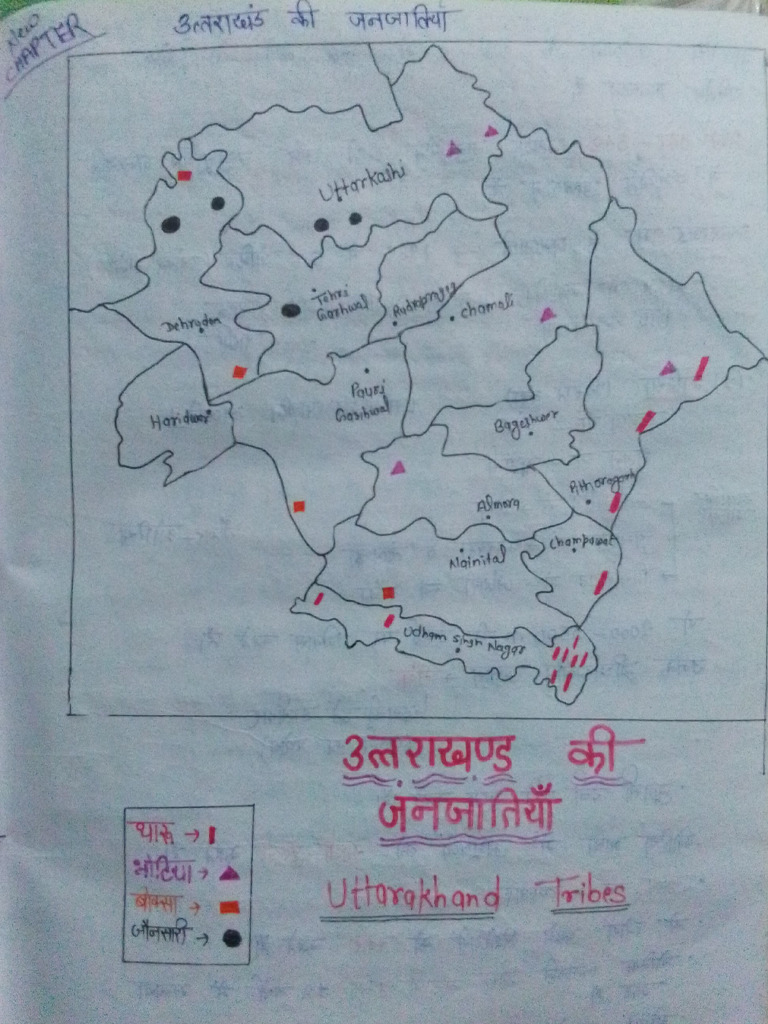 New
CHAPTER
उत्तराखंड की जनजातियाँ
Uttarkashi
Tehri
Garhwal
Rudraprayag
Chamoli
Dehradun
Pauri
Garhwal
Haridwar
Bageshwar
Almora
Pithoragarh
Champawat
Nainital
Udham Singh Nagar
उत्तराखण्ड की
जनजातियाँ
Uttarakhand Tribes
थारू →
भोटिया →
बोक्सा →
जौनसारी →